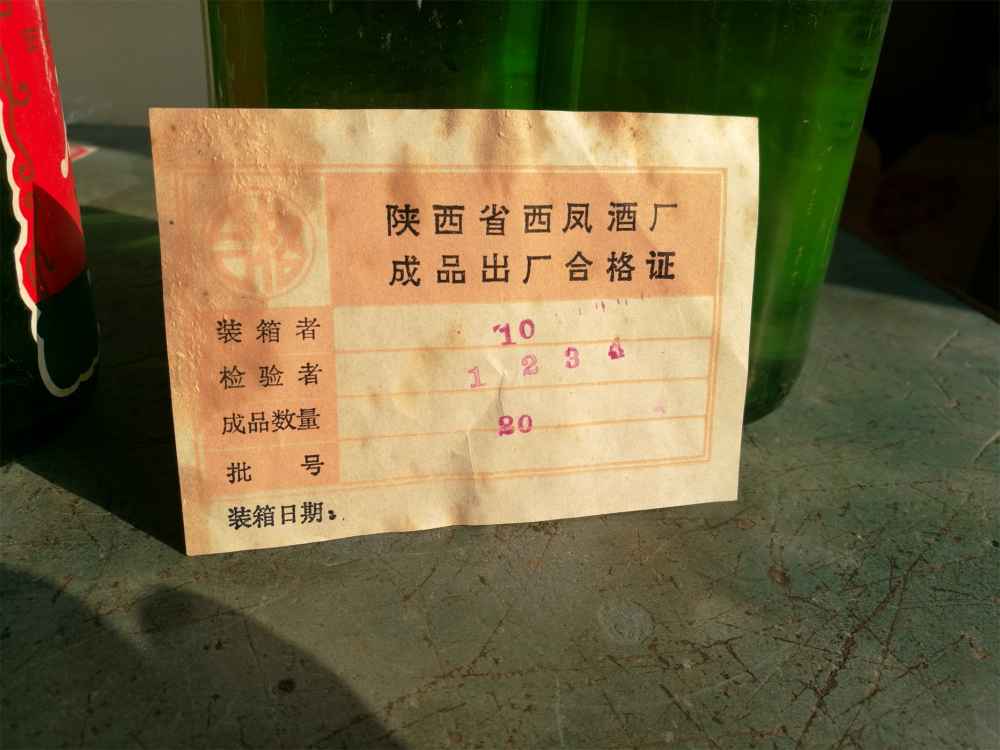 陕西省西凤酒厂
成品出厂合格证
装箱者 10
检验者 1 2 3 4
成品数量 20
批号
装箱日期: